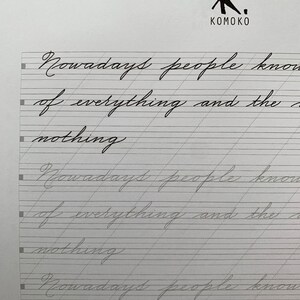 KOMOKO
Nowadays people know
of everything and the
nothing
Nowadays people know
of everything and the
nothing
Nowadays people know